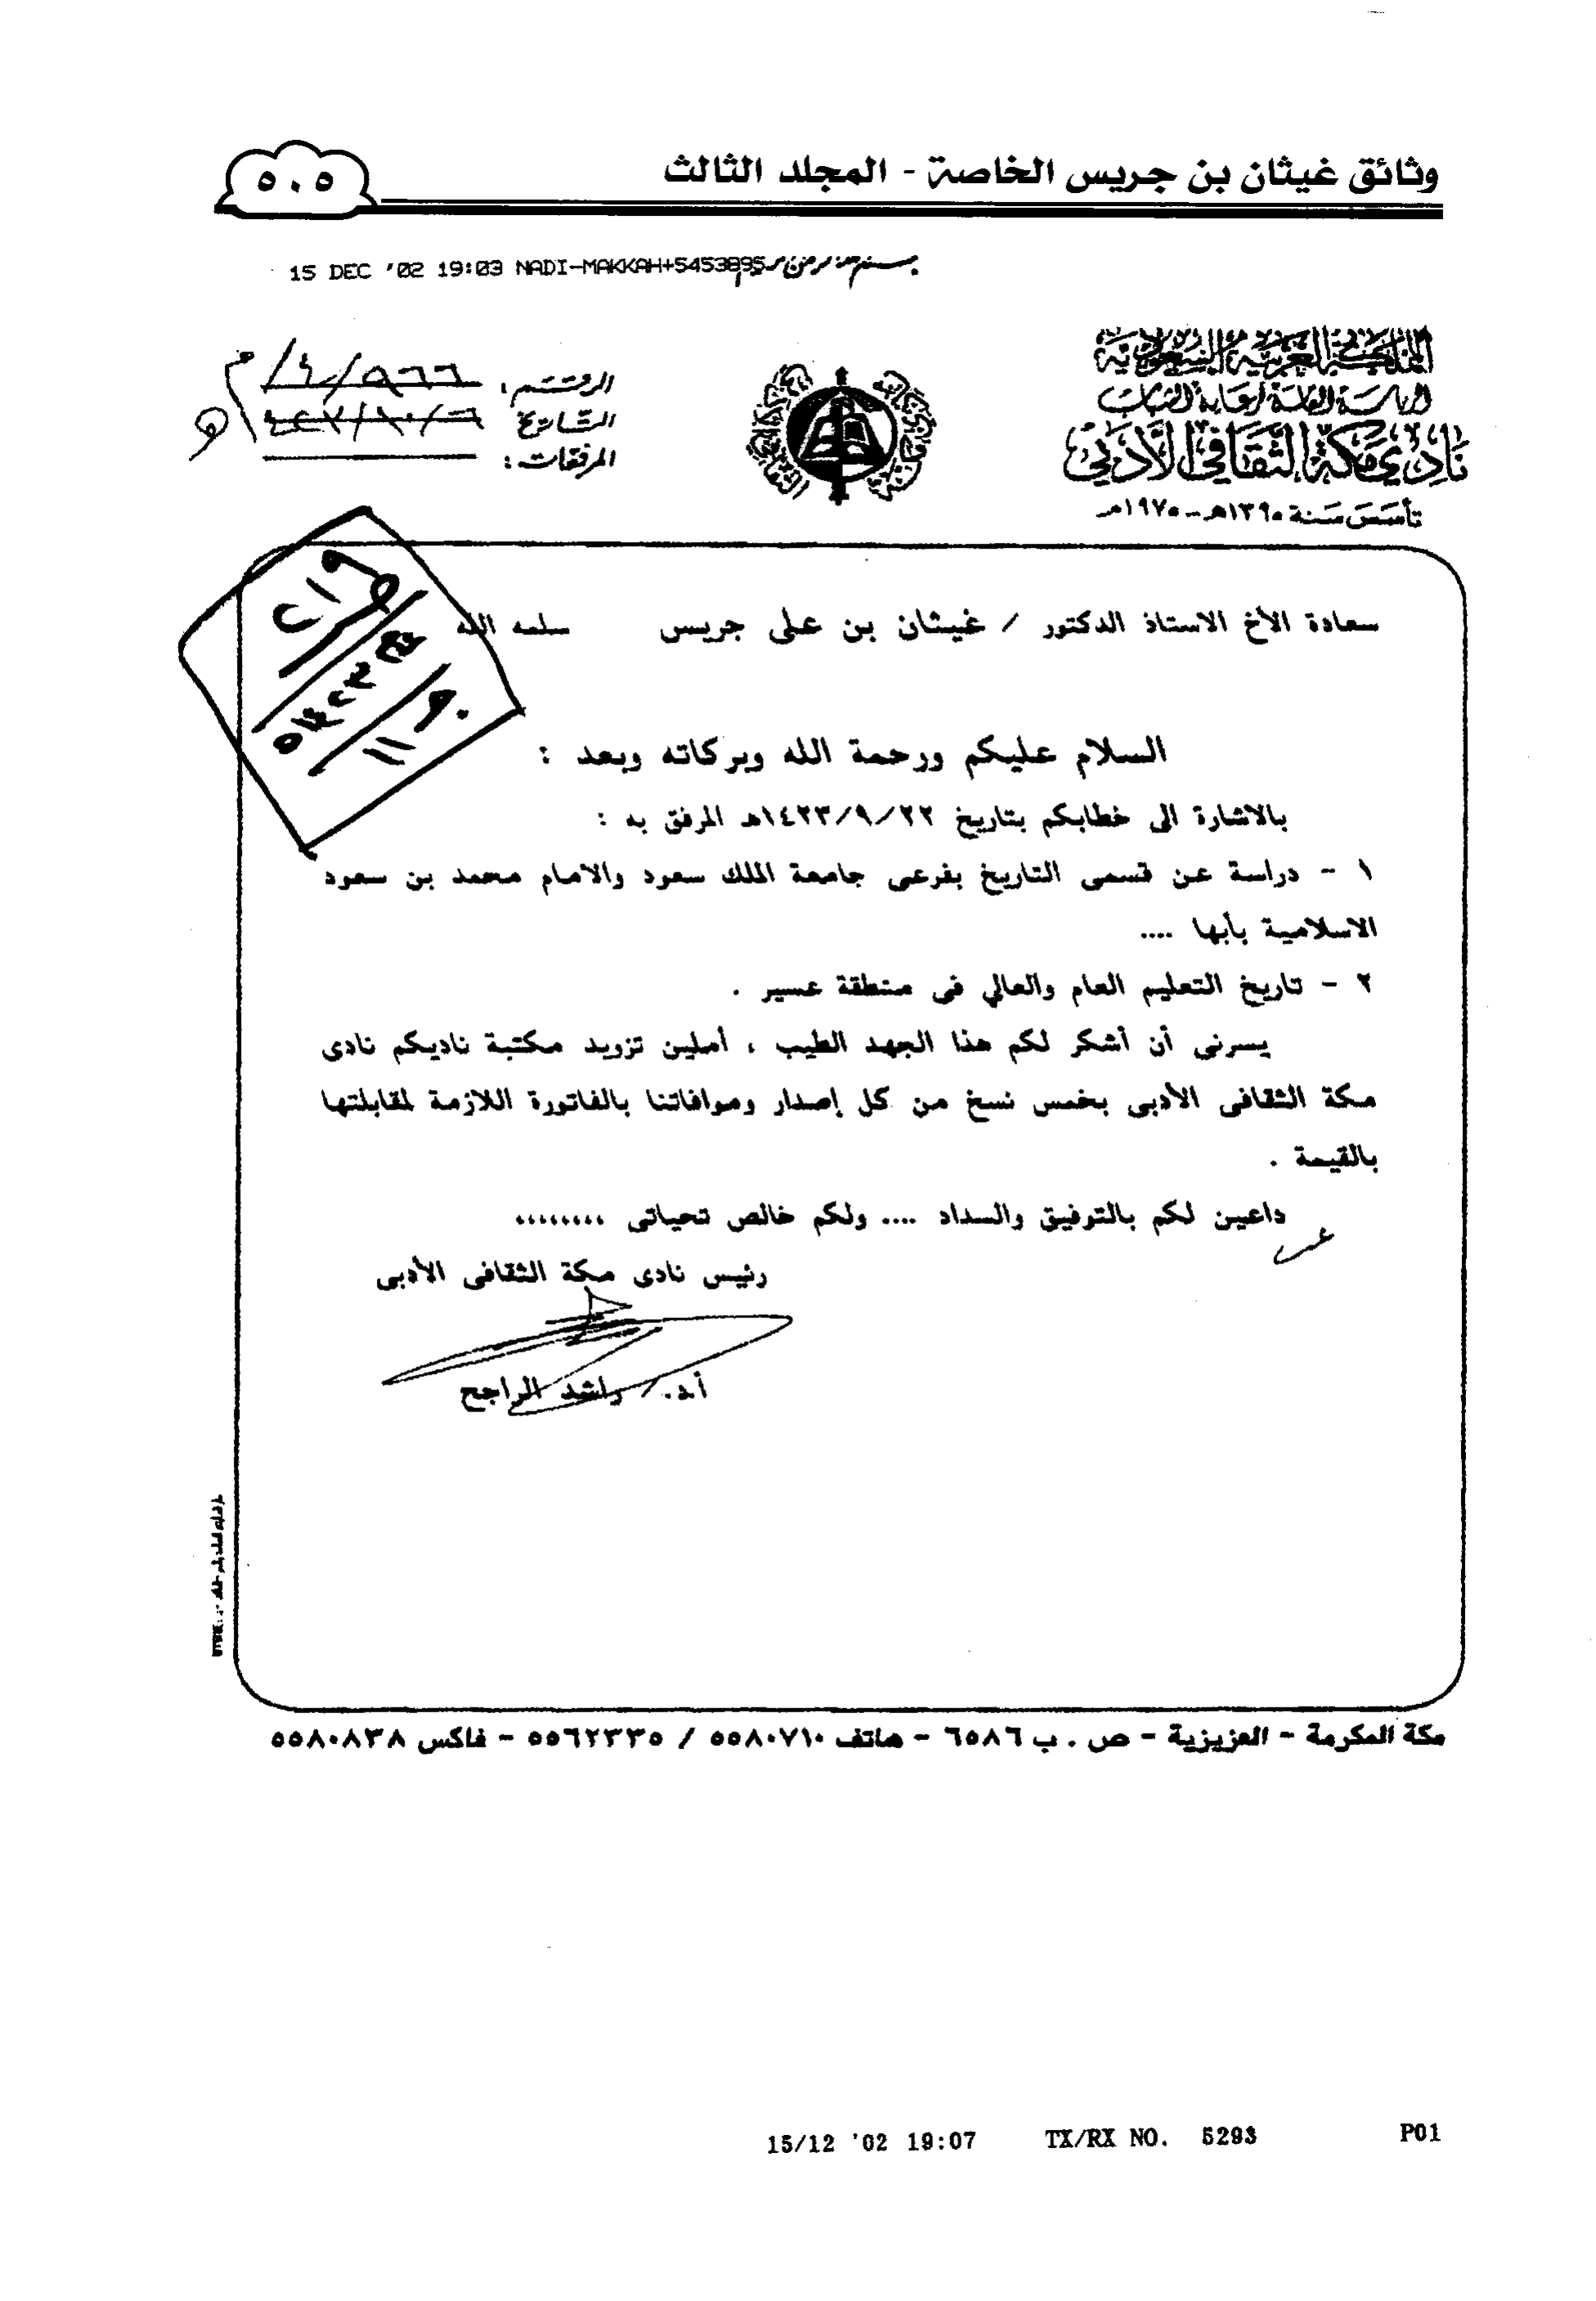 وثائق غيثان بن جريس الخاصة - المجلد الثالث
٥٠٥
15 DEC '02 19:03 NADI-MAKKAH+5453895
المملكة العربية السعودية
الرئاسة العامة لرعاية الشباب
نادي مكة الثقافي الأدبي
تأسس سنة ١٣٩٥هـ - ١٩٧٥م
الرقم:
التاريخ
المرفقات:
سعادة الأخ الاستاذ الدكتور / غيثان بن على جريس سلمه الله
السلام عليكم ورحمة الله وبركاته وبعد :
بالاشارة الى خطابكم بتاريخ ١٤٢٣/٩/٢٢هـ المرفق به :
١ - دراسة عن قسمى التاريخ بفرعى جامعة الملك سعود والامام محمد بن سعود
الاسلامية بأبها ....
٢ - تاريخ التعليم العام والعالي فى منطقة عسير .
يسرنى أن أشكر لكم هذا الجهد الطيب ، أملين تزويد مكتبة ناديكم نادى
مكة الثقافى الأدبى بخمس نسخ من كل إصدار وموافاتنا بالفاتورة اللازمة لمقابلتها
بالقيمة .
داعين لكم بالتوفيق والسداد .... ولكم خالص تحياتى ،،،،،،،،
رئيس نادى مكة الثقافى الأدبى
أ.د. / راشد الراجح
مكة المكرمة - العزيزية - ص . ب ٦٥٨٦ - هاتف ٥٥٨٠٧١٠ / ٥٥٦٢٣٣٥ - فاكس ٥٥٨٠٨٣٨
15/12 '02 19:07 TX/RX NO. 5293 P01